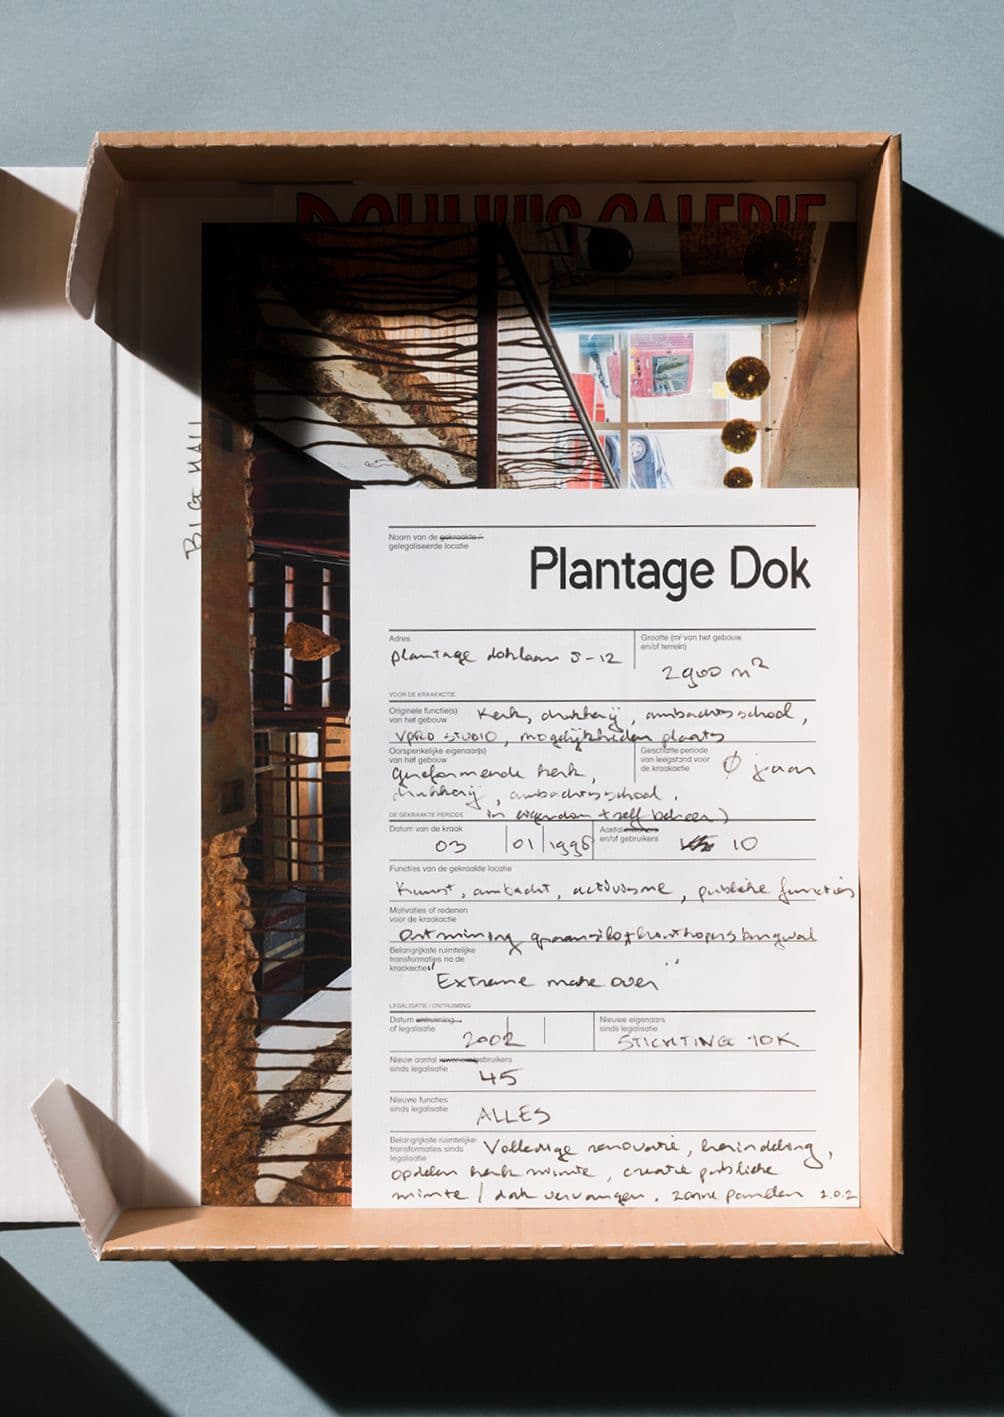 DOLHUIS GALERIE
BIG HALL
Naam van de gekraakte /
gelegaliseerde locatie
Plantage Dok
Adres
plantage doklaan 8-12
Grootte (m² van het gebouw
en/of terrein)
2900 m²
VOOR DE KRAAKACTIE
Originele functie(s)
van het gebouw
Kerk, drukkerij, ambachtsschool,
VPRO STUDIO, mogelijkheden plaats
Oorspronkelijke eigenaar(s)
van het gebouw
gereformeerde kerk,
drukkerij, ambachtsschool.
Geschatte periode
van leegstand voor
de kraakactie
Ø jaar
DE GEKRAAKTE PERIODE
in eigendom + zelf beheer)
Datum van de kraak
03 01 1998
Aantal
en/of gebruikers
10
Functies van de gekraakte locatie
Kunst, ambacht, activisme, publieke functies
Motivaties of redenen
voor de kraakactie
Ontruiming graansilo +
Belangrijkste ruimtelijke
transformaties na de
kraakactie
"Extreme make over"
LEGALISATIE / ONTRUIMING
Datum ontruiming
of legalisatie
2002
Nieuwe eigenaars
sinds legalisatie
STICHTING 10K
Nieuw aantal gebruikers
sinds legalisatie
45
Nieuwe functies
sinds legalisatie
ALLES
Belangrijkste ruimtelijke
transformaties sinds
legalisatie
Volledige renovatie, herindeling,
opdelen kerk ruimte, creatie publieke
ruimte / dak vervangen, zonne panelen